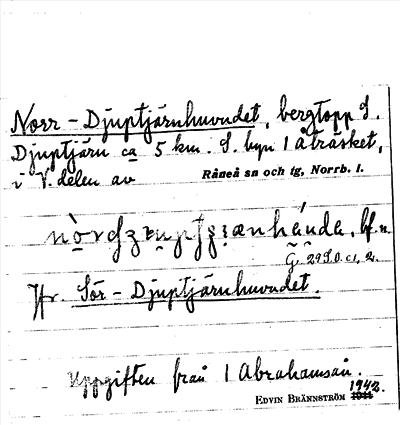 Norr-Djuptjärnhuvudet, bergtopp S.
Djuptjärn ca 5 km. S. byn Åträsket,
i V. delen av
Råneå sn och tg, Norrb. l.
bf. n.
G. 29 S.O. c1, 2.
Jfr. Sör-Djuptjärnhuvudet.
Uppgiften från I Abrahamsson.
EDVIN BRÄNNSTRÖM 1942.